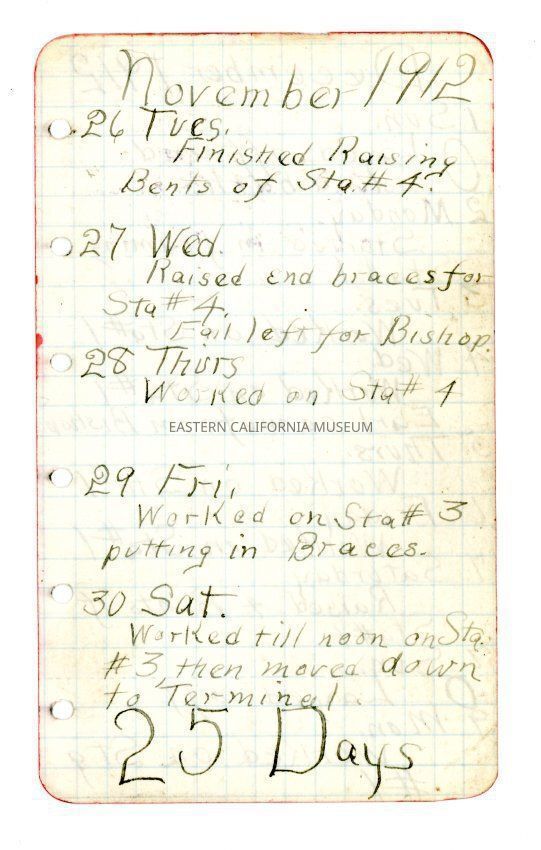 November 1912
26 Tues.
Finished Raising
Bents of Sta.# 4.
27 Wed.
Raised end braces for
Sta# 4.
left for Bishop.
28 Thurs
Worked on Sta# 4
EASTERN CALIFORNIA MUSEUM
29 Fri,
Worked on Sta# 3
putting in Braces.
30 Sat.
Worked till noon on Sta.
# 3, then moved down
to Terminal.
25 Days